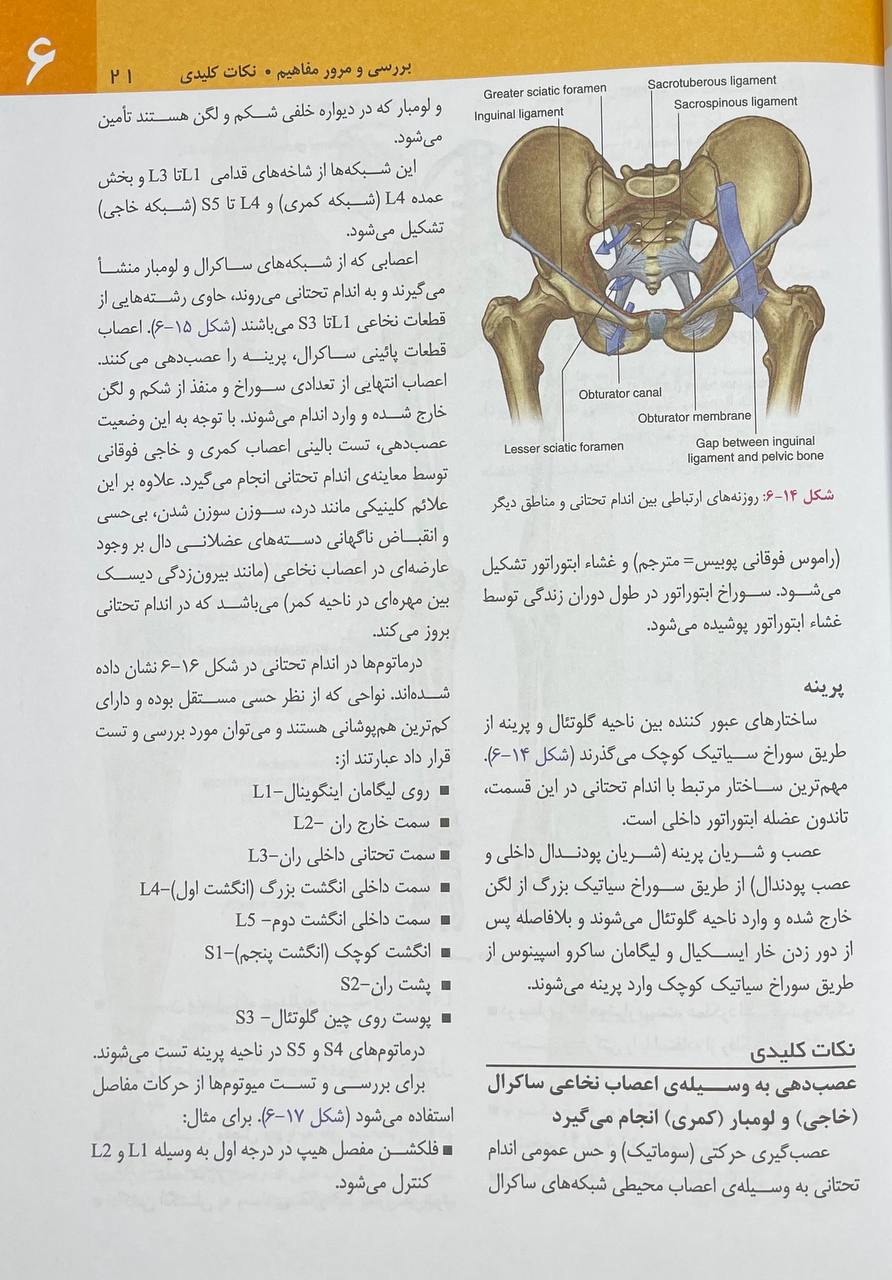 ۶
۲۱
بررسی و مرور مفاهیم • نکات کلیدی
Greater sciatic foramen
Sacrotuberous ligament
Inguinal ligament
Sacrospinous ligament
Obturator canal
Obturator membrane
Lesser sciatic foramen
Gap between inguinal
ligament and pelvic bone
شکل ۱۴-۶: روزنه‌های ارتباطی بین اندام تحتانی و مناطق دیگر
(راموس فوقانی پوبیس= مترجم) و غشاء ابتوراتور تشکیل
می‌شود. سوراخ ابتوراتور در طول دوران زندگی توسط
غشاء ابتوراتور پوشیده می‌شود.
پرینه
ساختارهای عبور کننده بین ناحیه گلوتئال و پرینه از
طریق سوراخ سیاتیک کوچک می‌گذرند (شکل ۱۴-۶).
مهم‌ترین ساختار مرتبط با اندام تحتانی در این قسمت،
تاندون عضله ابتوراتور داخلی است.
عصب و شریان پرینه (شریان پودندال داخلی و
عصب پودندال) از طریق سوراخ سیاتیک بزرگ از لگن
خارج شده و وارد ناحیه گلوتئال می‌شوند و بلافاصله پس
از دور زدن خار ایسکیال و لیگامان ساکرو اسپینوس از
طریق سوراخ سیاتیک کوچک وارد پرینه می‌شوند.
نکات کلیدی
عصب‌دهی به وسیله‌ی اعصاب نخاعی ساکرال
(خاجی) و لومبار (کمری) انجام می‌گیرد
عصب‌گیری حرکتی (سوماتیک) و حس عمومی اندام
تحتانی به وسیله‌ی اعصاب محیطی شبکه‌های ساکرال
و لومبار که در دیواره خلفی شکم و لگن هستند تأمین
می‌شود.
این شبکه‌ها از شاخه‌های قدامی L1 تا L3 و بخش
عمده L4 (شبکه کمری) و L4 تا S5 (شبکه خاجی)
تشکیل می‌شود.
اعصابی که از شبکه‌های ساکرال و لومبار منشأ
می‌گیرند و به اندام تحتانی می‌روند، حاوی رشته‌هایی از
قطعات نخاعی L1 تا S3 می‌باشند (شکل ۱۵-۶). اعصاب
قطعات پائینی ساکرال، پرینه را عصب‌دهی می‌کنند.
اعصاب انتهایی از تعدادی سوراخ و منفذ از شکم و لگن
خارج شده و وارد اندام می‌شوند. با توجه به این وضعیت
عصب‌دهی، تست بالینی اعصاب کمری و خاجی فوقانی
توسط معاینه‌ی اندام تحتانی انجام می‌گیرد. علاوه بر این
علائم کلینیکی مانند درد، سوزن سوزن شدن، بی‌حسی
و انقباض ناگهانی دسته‌های عضلانی دال بر وجود
عارضه‌ای در اعصاب نخاعی (مانند بیرون‌زدگی دیسک
بین مهره‌ای در ناحیه کمر) می‌باشد که در اندام تحتانی
بروز می‌کند.
درماتوم‌ها در اندام تحتانی در شکل ۱۶-۶ نشان داده
شده‌اند. نواحی که از نظر حسی مستقل بوده و دارای
کم‌ترین هم‌پوشانی هستند و می‌توان مورد بررسی و تست
قرار داد عبارتند از:
■ روی لیگامان اینگوینال-L1
■ سمت خارج ران -L2
■ سمت تحتانی داخلی ران-L3
■ سمت داخلی انگشت بزرگ (انگشت اول)-L4
■ سمت داخلی انگشت دوم- L5
■ انگشت کوچک (انگشت پنجم)-S1
■ پشت ران-S2
■ پوست روی چین گلوتئال- S3
درماتوم‌های S4 و S5 در ناحیه پرینه تست می‌شوند.
برای بررسی و تست میوتوم‌ها از حرکات مفاصل
استفاده می‌شود (شکل ۱۷-۶). برای مثال:
■ فلکشن مفصل هیپ در درجه اول به وسیله L1 و L2
کنترل می‌شود.